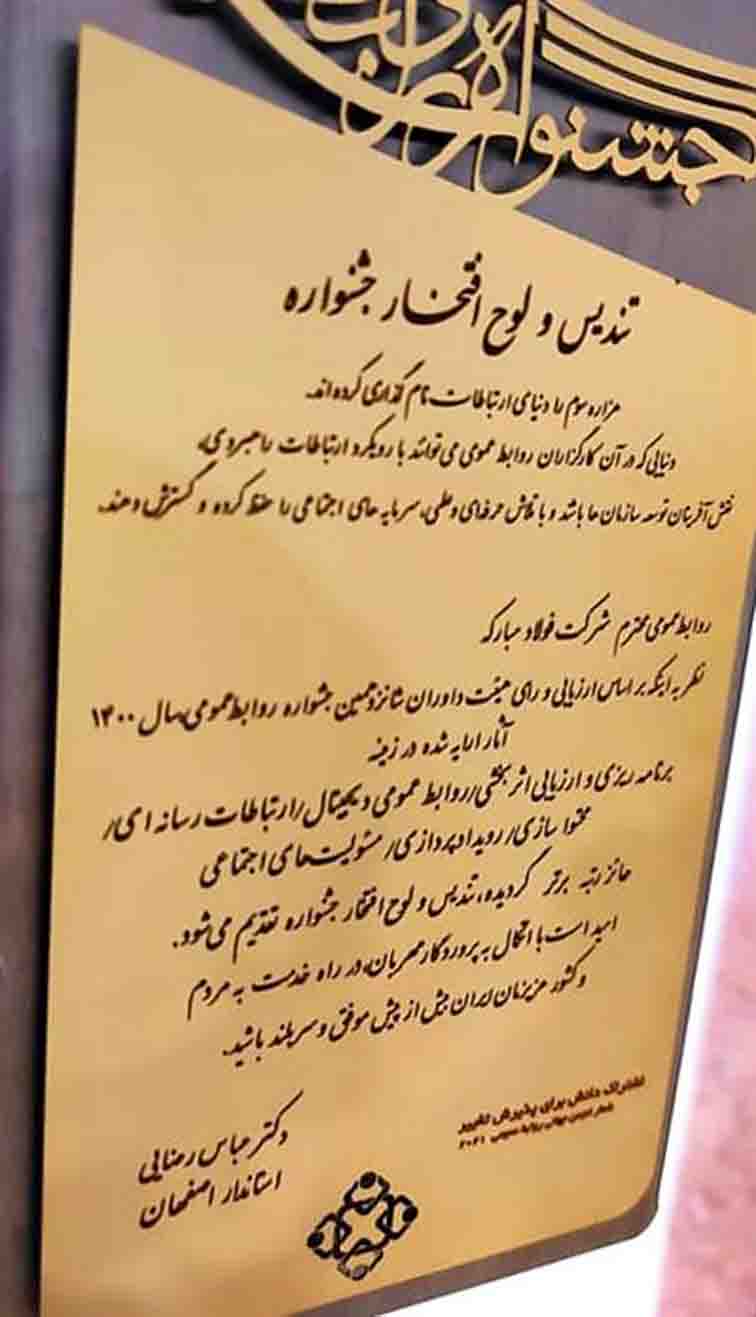 جشنواره
تندیس و لوح افتخار جشنواره
هزاره سوم را دنیای ارتباطات نام گذاری کرده اند.
دنیایی که در آن کارگزاران روابط عمومی می توانند با رویکرد ارتباطات راهبردی،
نقش آفرینان توسعه سازمان ها باشد و با تلاش حرفه ای و علمی، سرمایه های اجتماعی را حفظ کرده و گسترش دهند.
روابط عمومی محترم شرکت فولاد مبارکه
نظر به اینکه بر اساس ارزیابی و رای هیئت داوران شانزدهمین جشنواره روابط عمومی، سال ۱۴۰۰
آثار ارایه شده در زمینه
برنامه ریزی و ارزیابی اثر بخشی/روابط عمومی دیجیتال/ارتباطات رسانه ای/
محتوا سازی/رویداد پردازی/مسئولیت های اجتماعی
حائز رتبه برتر گردیده، تندیس و لوح افتخار جشنواره تقدیم می شود.
امید است با اتکال به پروردگار مهربان، در راه خدمت به مردم
و کشور عزیزمان ایران بیش از پیش موفق و سربلند باشید.
اشتراک دانش برای پذیرش تغییر
شعار انجمن جهانی روابط عمومی ۲۰۲۱
دکتر عباس رضایی
استاندار اصفهان